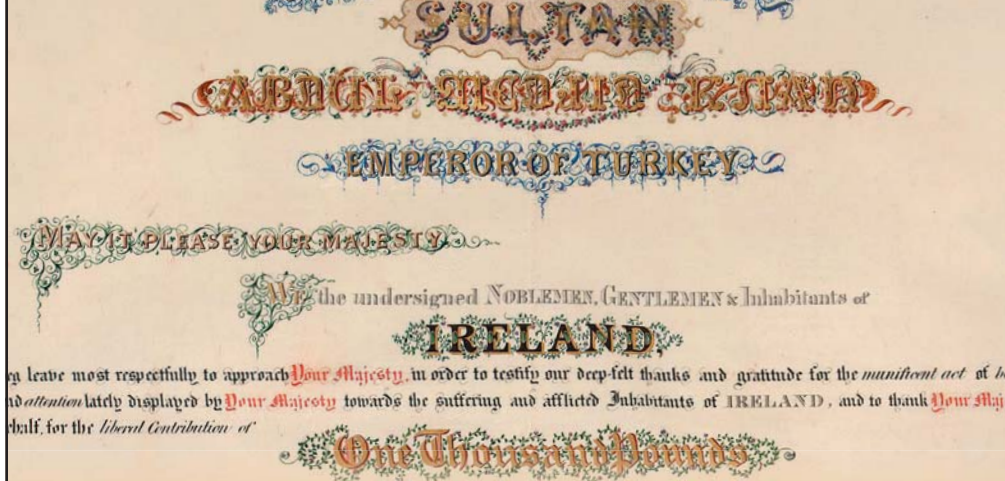 SULTAN
ABDUL MEDJID KHAN
EMPEROR OF TURKEY
MAY IT PLEASE YOUR MAJESTY
WE the undersigned NOBLEMEN, GENTLEMEN & Inhabitants of
IRELAND,
leave most respectfully to approach Your Majesty, in order to testify our deep-felt thanks and gratitude for the munificent act of
attention lately displayed by Your Majesty towards the suffering and afflicted Inhabitants of IRELAND, and to thank Your
for the liberal Contribution of
One Thousand Pounds